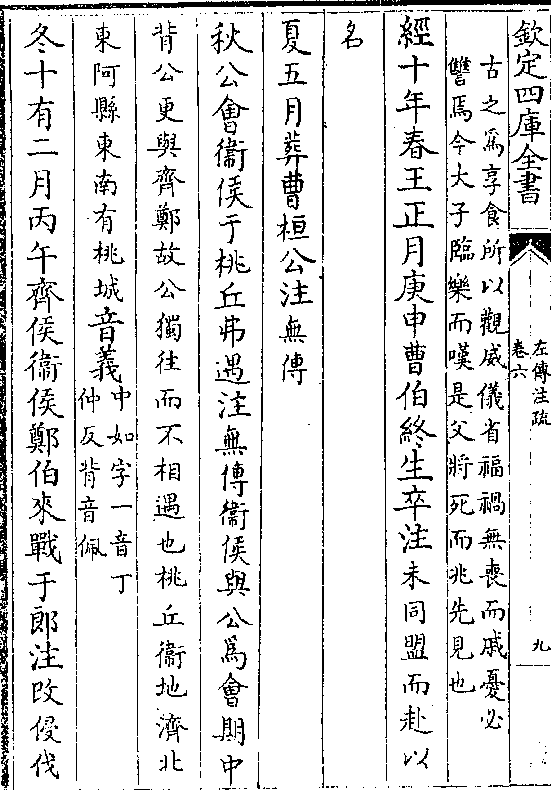 欽定四庫全書
左傳注疏
卷六
九
古之為享食所以觀威儀省福禍無喪而戚憂必
讐焉今大子臨樂而嘆是父將死而兆先見也
經十年春王正月庚申曹伯終生卒注未同盟而赴以
名
夏五月葬曹桓公注無傳
秋公會衞侯于桃丘弗遇注無傳衞侯與公爲會期中
背公更與齊鄭故公獨往而不相遇也桃丘衞地濟北
東阿縣東南有桃城音義中如字一音丁
仲反背音佩
冬十有二月丙午齊侯衞侯鄭伯來戰于郎注改侵伐